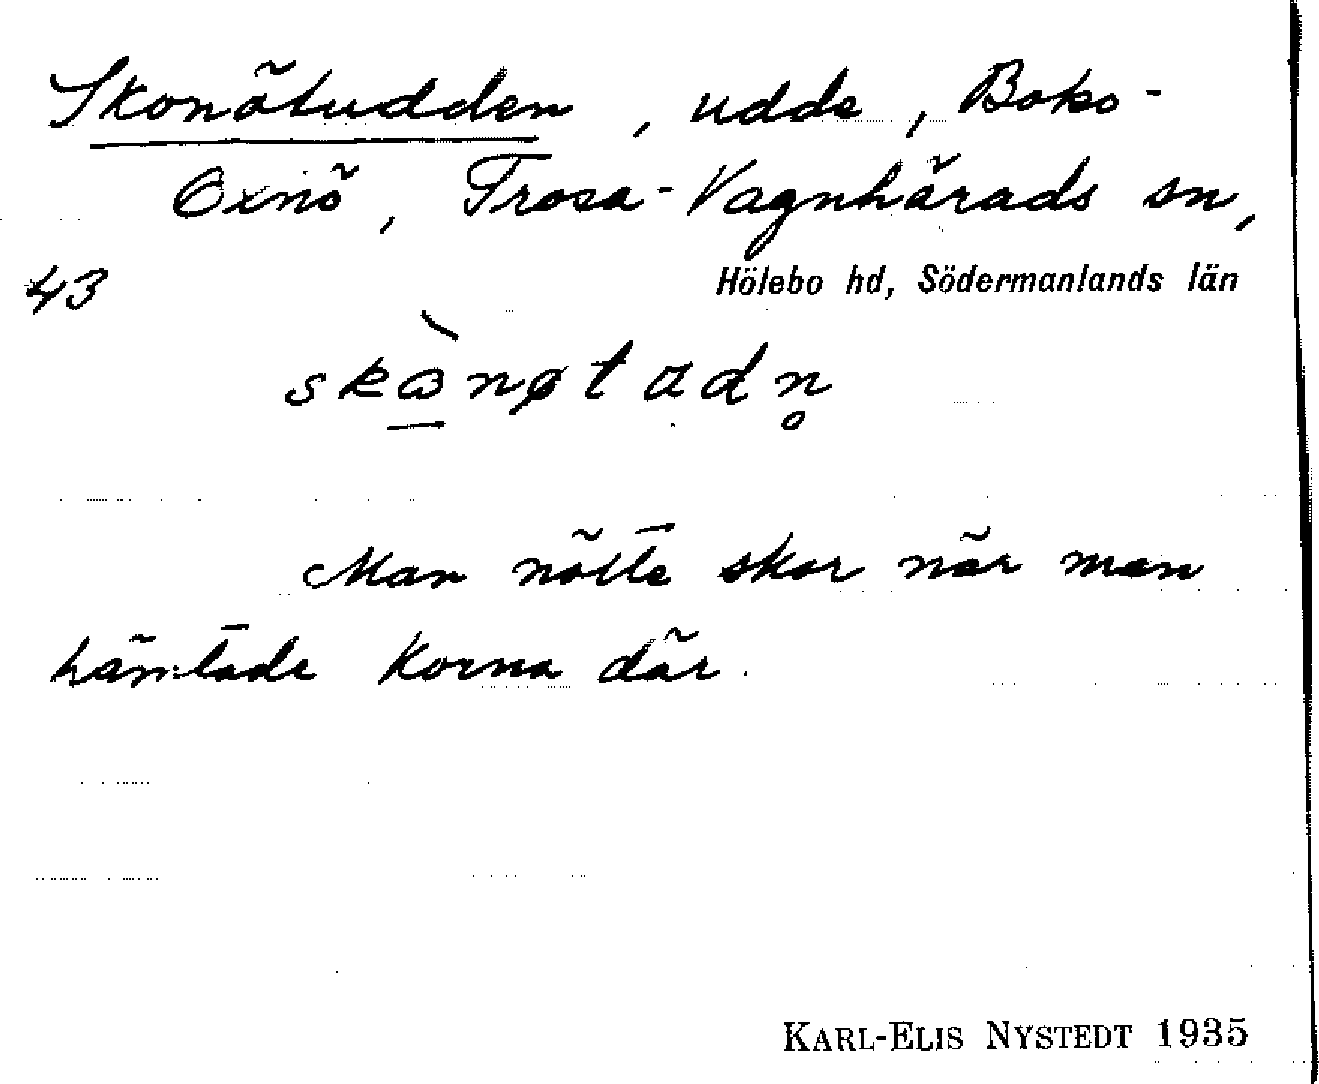 Skonötudden, udde, Boko-
Oxnö, Trosa-Vagnhärads sn,
43
Hölebo hd, Södermanlands län
Man nötte skor när man
hämtade korna där.
KARL-ELIS NYSTEDT 1935